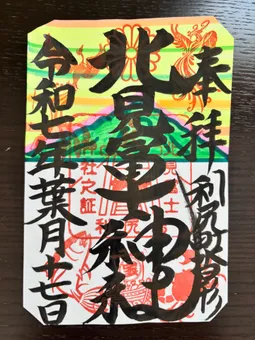 奉拝
利尻町沓形
北見富士神社
令和七年葉月十七日